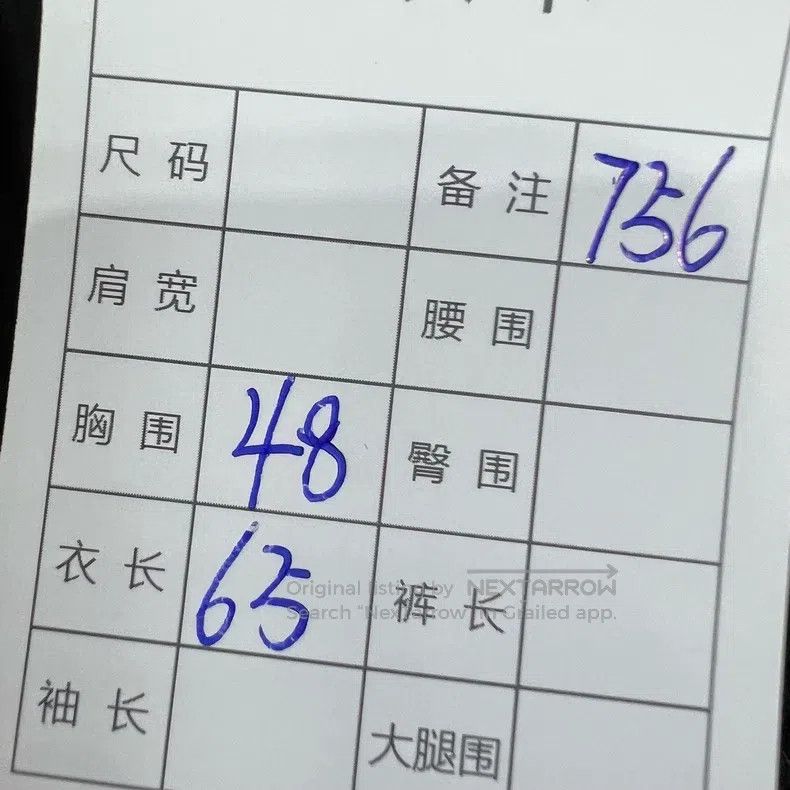 尺码 备注 756
肩宽 腰围
胸围 48 臀围
衣长 65 裤长
Original listing by NEXTARROW
Search "Nextarrow" on Grailed app.
袖长 大腿围